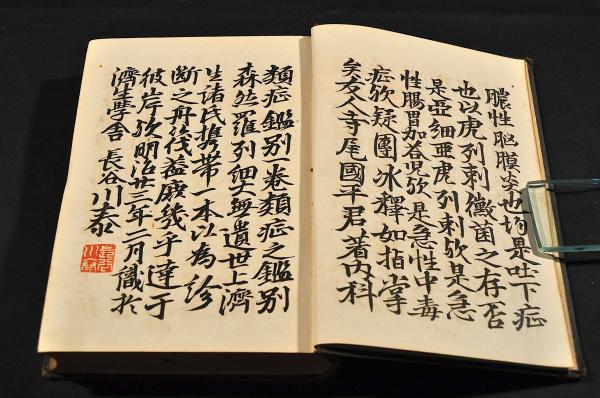 膿性腦膜炎也均是吐下症
也以虎列刺黴菌之存否
是亞細亜虎列刺歟是急
性腸胃加荅児歟是急性中毒
症歟疑團氷釋如指掌
矣友人寺尾國平君著内科
類症鑑別一巻類症之鑑別
森然羅列細大無遺世上濟
生諸氏携帯一本以為診
断之舟筏蓋庶幾乎達于
彼岸歟明治廿三年二月識於
濟生學舎 長谷川泰